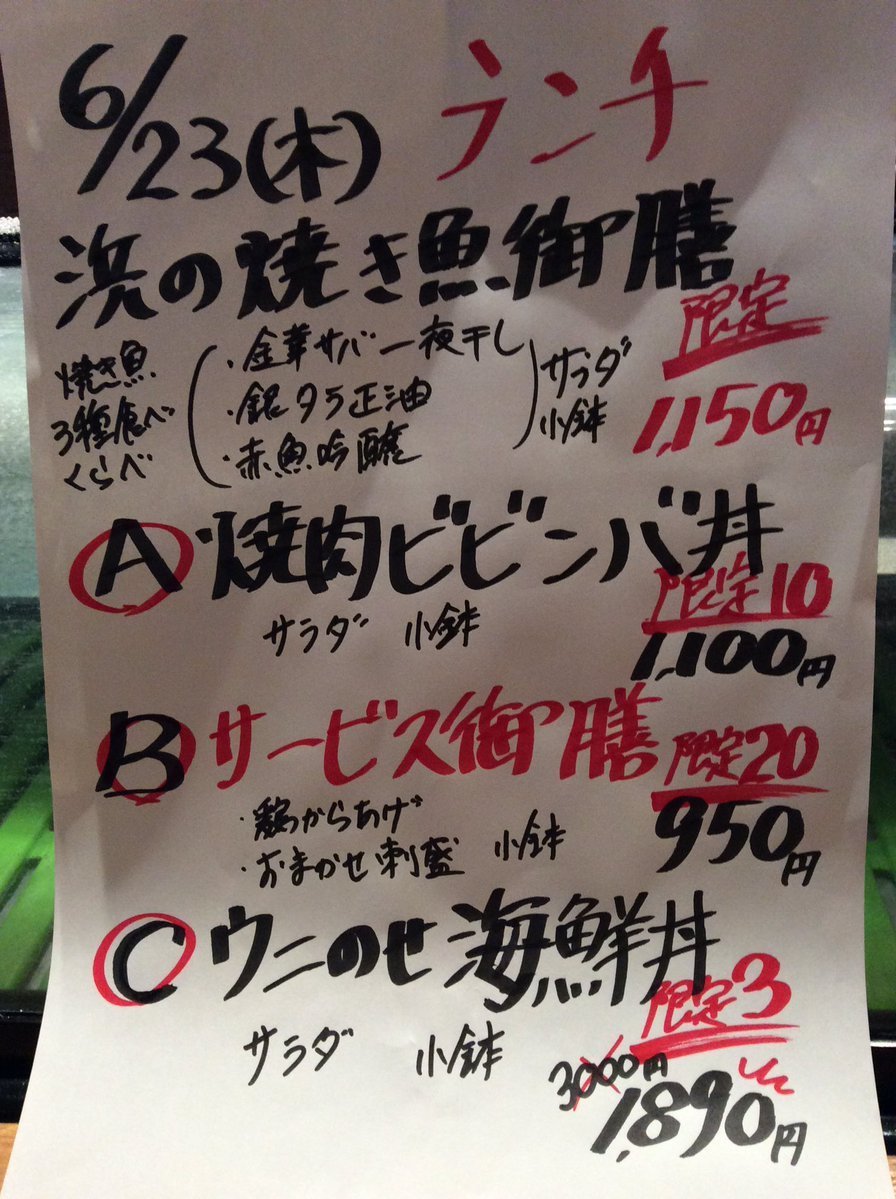 6/23(木) ランチ
浜の焼き魚御膳
限定
焼き魚
3種食べ
くらべ
・金華サバ一夜干し
・銀タラ正油
・赤魚吟醸
サラダ
小鉢
1,150円
A 焼肉ビビンバ丼
限定10
サラダ 小鉢
1,100円
B サービス御膳 限定20
・鶏からあげ
・おまかせ刺盛 小鉢
950円
C ウニのせ海鮮丼
限定3
サラダ 小鉢
3000円
1,890円